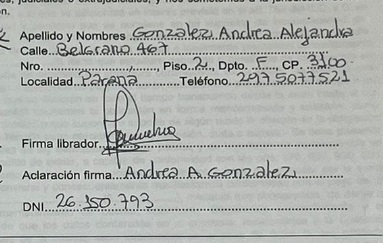 Apellido y Nombres Gonzalez Andrea Alejandra
Calle Belgrano 467
Nro. ..........., Piso 2., Dpto. F., CP. 3100
Localidad Parana Teléfono 2975077521
Firma librador
Aclaración firma Andrea A Gonzalez
DNI 26.150.793